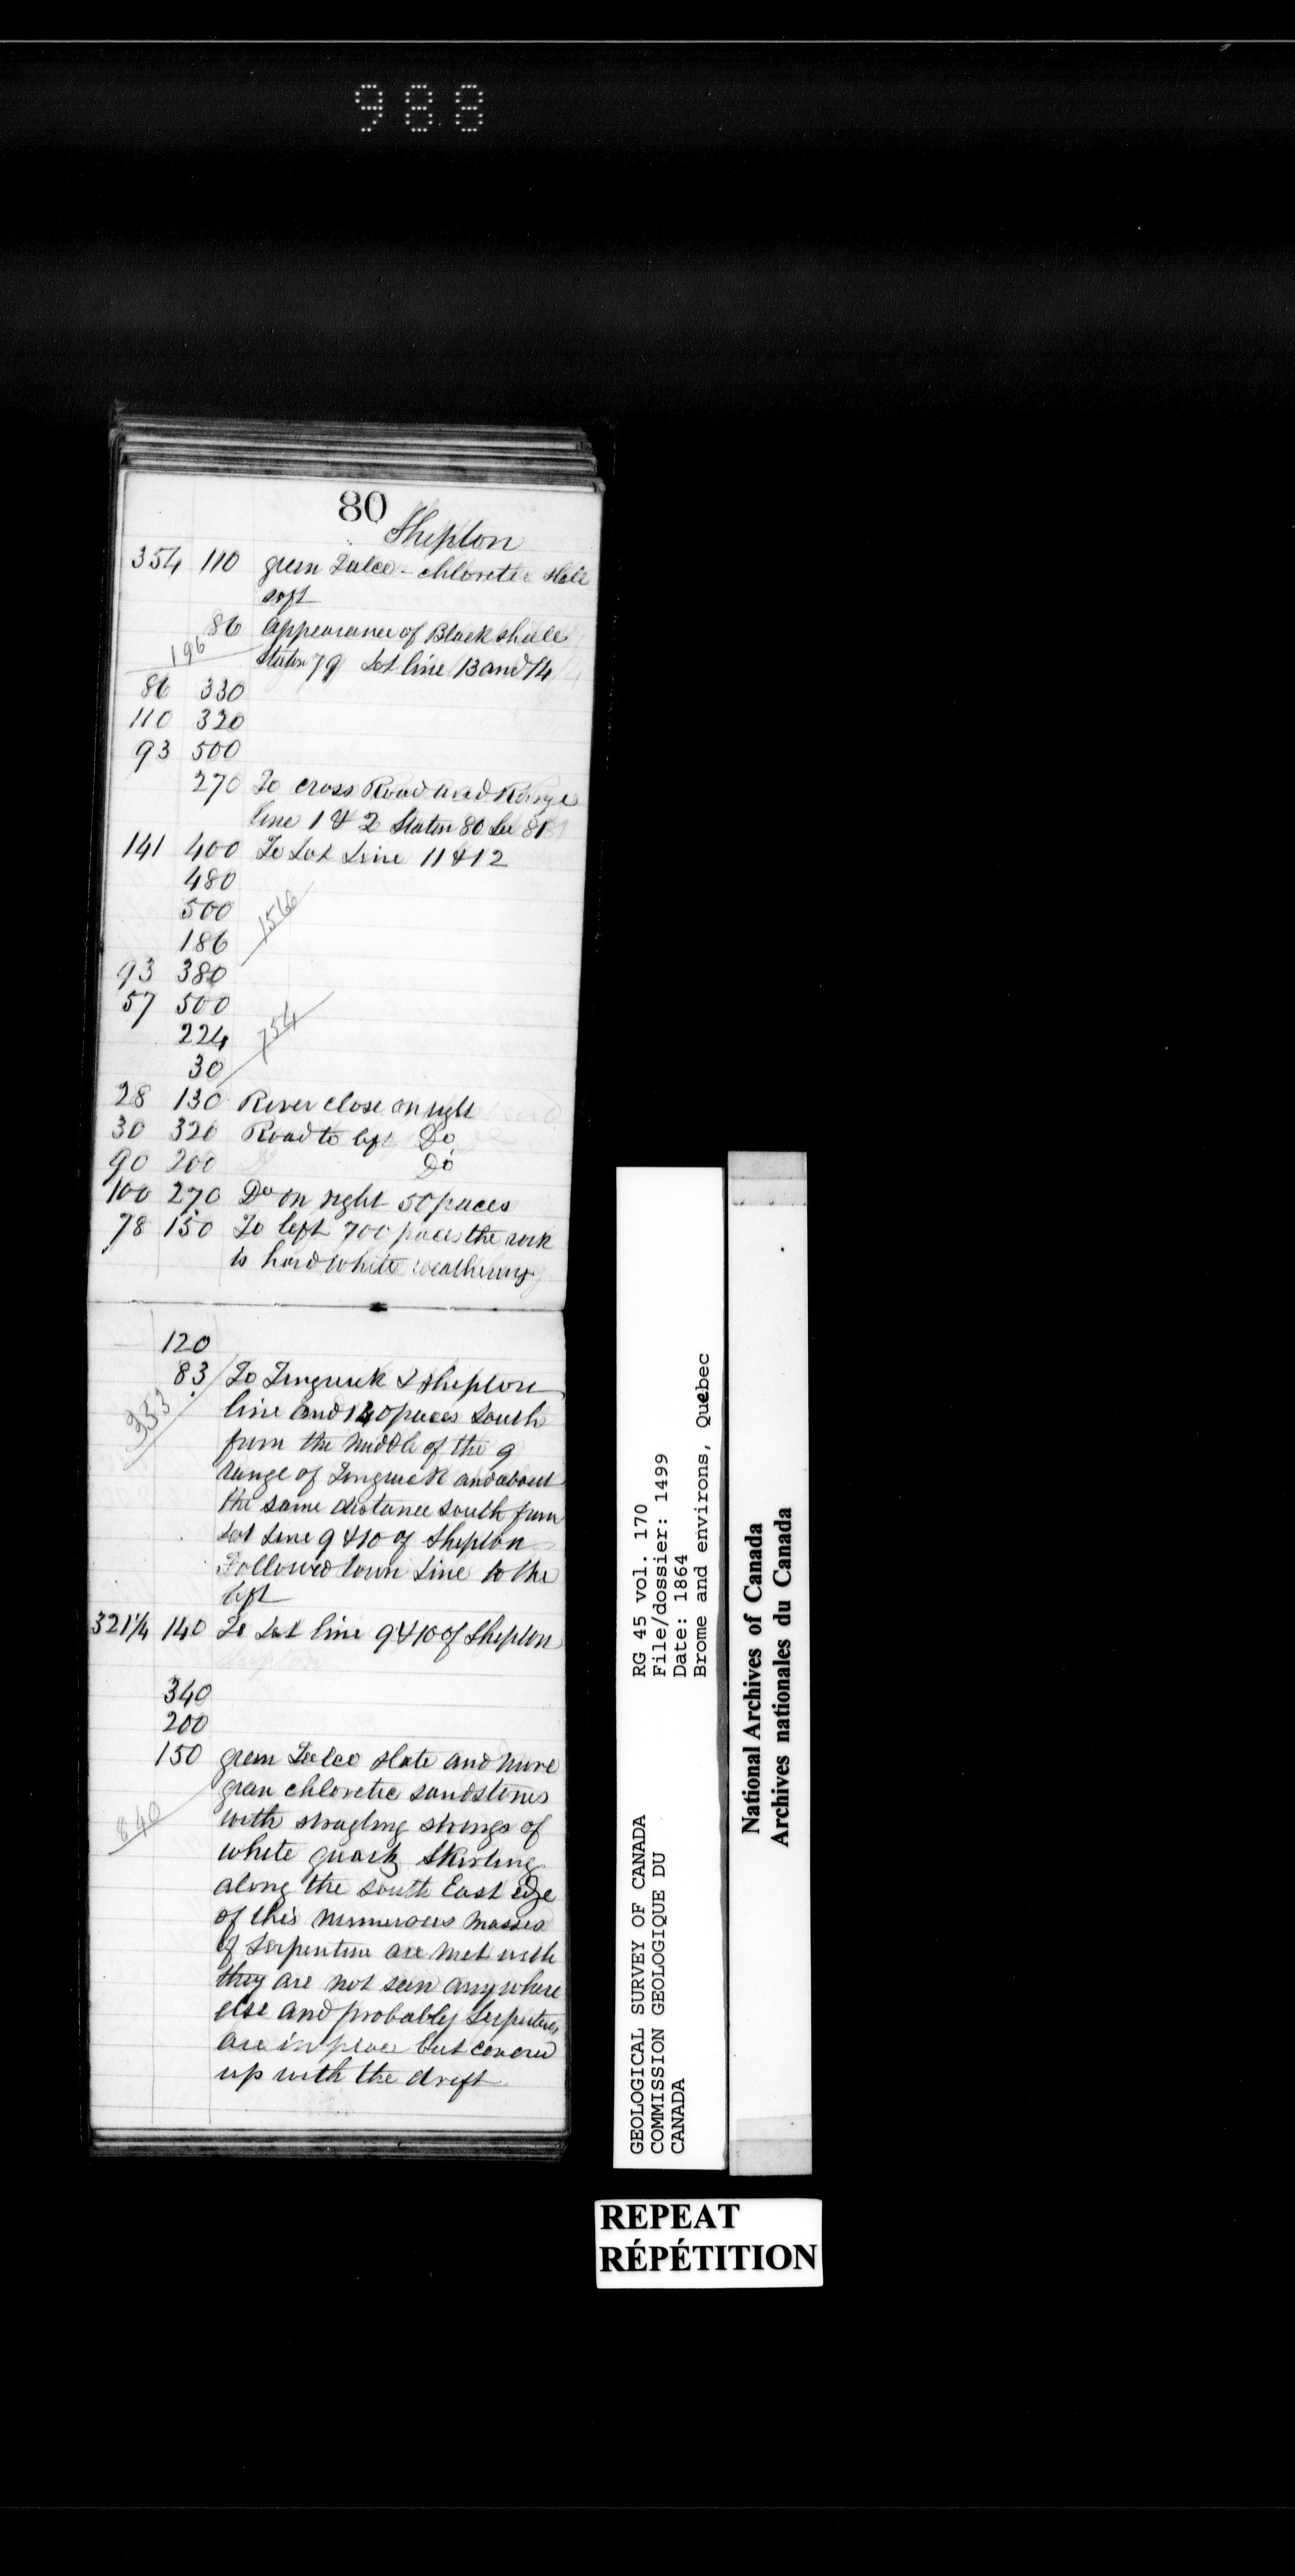 988
80
Shipton
354 110 green Talco - chloretic slate
soft
86 appearance of Black shale
196
Station 79 Lot line 13 and 14
86 330
110 320
93 500
270 To cross Road and Range
line 1 & 2 Station 80 See 81
141 400 To Lot Line 11 & 12
480
500
1566
186
93 380
57 500
224
754
30
28 130 River close on right
30 320 Road to left Do
90 200 Do
100 270 Do on right 50 paces
78 150 To left 700 paces the rock
is hard white weathering
120
83 To Tingwick & Shipton
353
line and 140 paces South
from the middle of the 9
range of Tingwick and about
the same distance south from
Lot Line 9 & 10 of Shipton
Followed town Line to the
left
321¼ 140 To Lot line 9 & 10 of Shipton
340
200
150 green Talco slate and more
green chloretic sandstones
840
with stragling strings of
white quartz Skirting
along the south East edge
of this numerous masses
of Serpentine are met with
they are not seen anywhere
else and probably Serpentines
are in place but covered
up with the drift
GEOLOGICAL SURVEY OF CANADA
COMMISSION GEOLOGIQUE DU
CANADA
RG 45 vol. 170
File/dossier: 1499
Date: 1864
Brome and environs, Québec
National Archives of Canada
Archives nationales du Canada
REPEAT
RÉPÉTITION